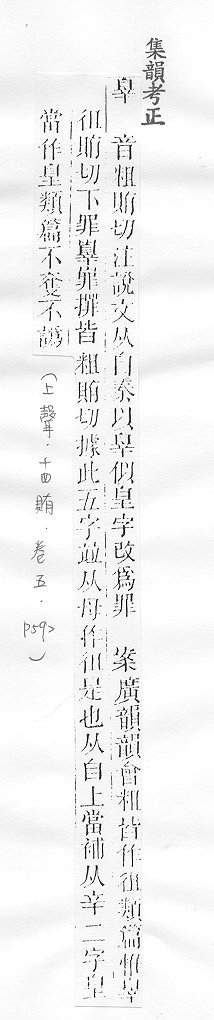 集韻考正
辠 音粗賄切注說文从自秦以辠似皇字改為罪 案廣韻韻會粗皆作徂類篇惟辠
徂賄切下罪 皆粗賄切據此五字並从母作徂是也从自上當補从辛二字皇
當作皇類篇不 不譌
(上聲·十四賄·卷五·P59)